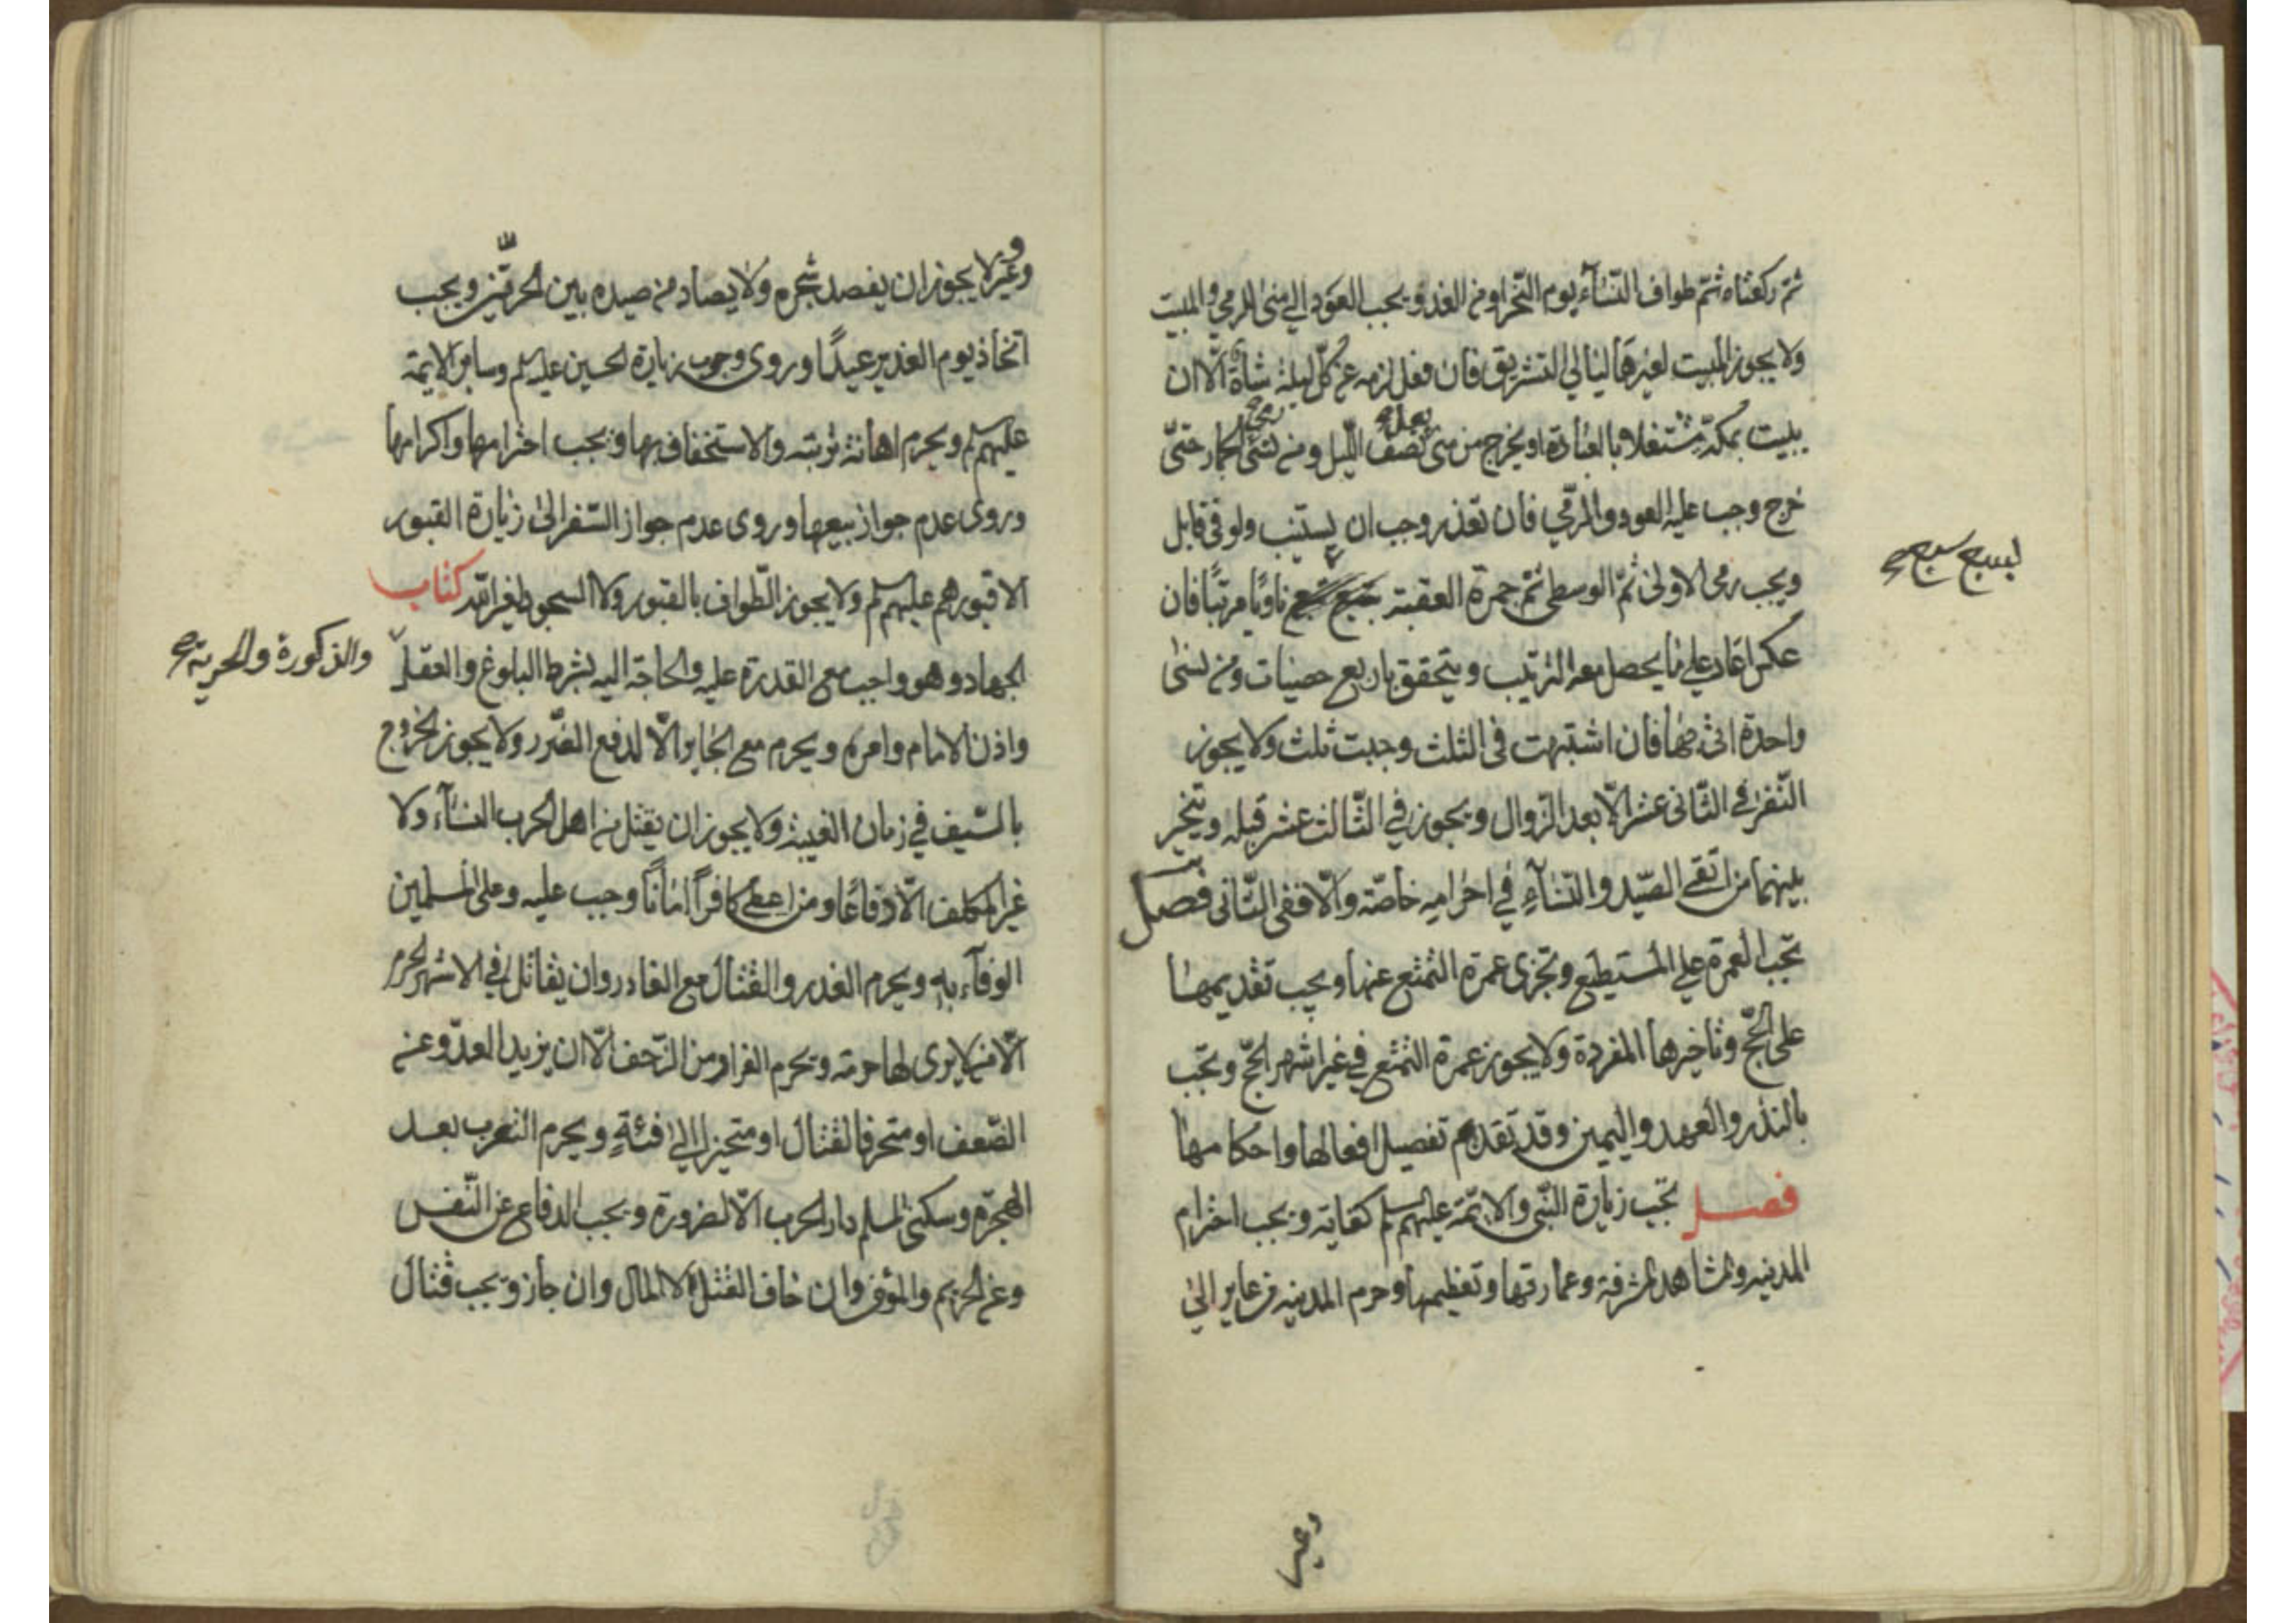 ثم ركعتاه ثم طواف النسآء يوم النحر او من الغد و يجب العود الي منى للرمي و المبيت
ولا يجوز المبيت لغيرها ليالي التشريق فان فعل لزمه عن كل ليلة شاة الا ان
يبيت بمكة مشتغلا بالعبادة او يخرج من منى نصف الليل ومن نسي الجمار حتى
بعد
خرج وجب عليه العود و الرمي فان تعذر وجب ان يستنيب ولو في قابل
ويجب رمى الاولى ثم الوسطى ثم جمرة العقبة ناويا مرتبا فان
بسبع سبع صح
عكس اعاد على ما يحصل معه الترتيب و يتحقق باربع حصيات ومن نسى
واحدة فان اشتبهت في الثلث وجبت ثلث ولا يجوز
النفر في الثاني عشر الا بعد الزوال و يجوز في الثالث عشر قبله ويتخير
بينهما من اتقى الصيد و النسآء في احرامه خاصة والا ففي الثاني فصل
تجب العمرة على المستطيع وتجزى عمرة التمتع عنها ويجب تقديمها
على الحج وتاخيرها المفردة ولا يجوز عمرة التمتع في غير اشهر الحج وتجب
بالنذر والعهد واليمين وقد تقدم تفصيل افعالها واحكامها
فصل تجب زيارة النبي والائمة عليهم السلم كفاية و يجب احترام
المدينه والمشاهد المشرفة وعمارتها وتعظيمها وحرم المدينه من عاير الى
وعير
وعير لا يجوز ان يعضد شجره ولا يصاد من صيده بين الحرتين ويجب
اتخاذ يوم الغدير عيدًا وروى وجوب زيارة الحسين عليه السلم وساير الائمة
عليهم السلم ويحرم اهانة تربته والاستخفاف بها ويجب احترامها واكرامها
وروى عدم جواز بيعها وروى عدم جواز السفر الى زيارة القبور
الا قبورهم عليهم السلم ولا يجوز الطواف بالقبور ولا السجود لغير الله كتاب
الجهاد وهو واجب مع القدرة عليه والحاجة اليه بشرط البلوغ والعقل
والذكورة والحرية صح
واذن الامام وامره ويحرم مع الجاير الا لدفع الضرر ولا يجوز الخروج
بالسيف في زمان الغيبة ولا يجوز ان يقتل من اهل الحرب النسآء ولا
غير المكلف الا دفاعًا ومن اعطى كافرًا امانًا وجب عليه وعلى المسلمين
الوفآء به ويحرم الغدر والقتال مع الغادر وان يقاتل في الاشهر الحرم
الا من لا يرى لها حرمة ويحرم الفرار من الزحف الا ان يزيد العدو عن
الضعف او متحرفا لقتال او متحيزا الى فئة ويحرم التعرب بعد
الهجرة وسكنى المسلم دار الحرب الا لضرورة ويجب الدفاع عن النفس
وعن الحريم والمؤمن وان خاف القتل لا المال وان جاز ويجب قتال